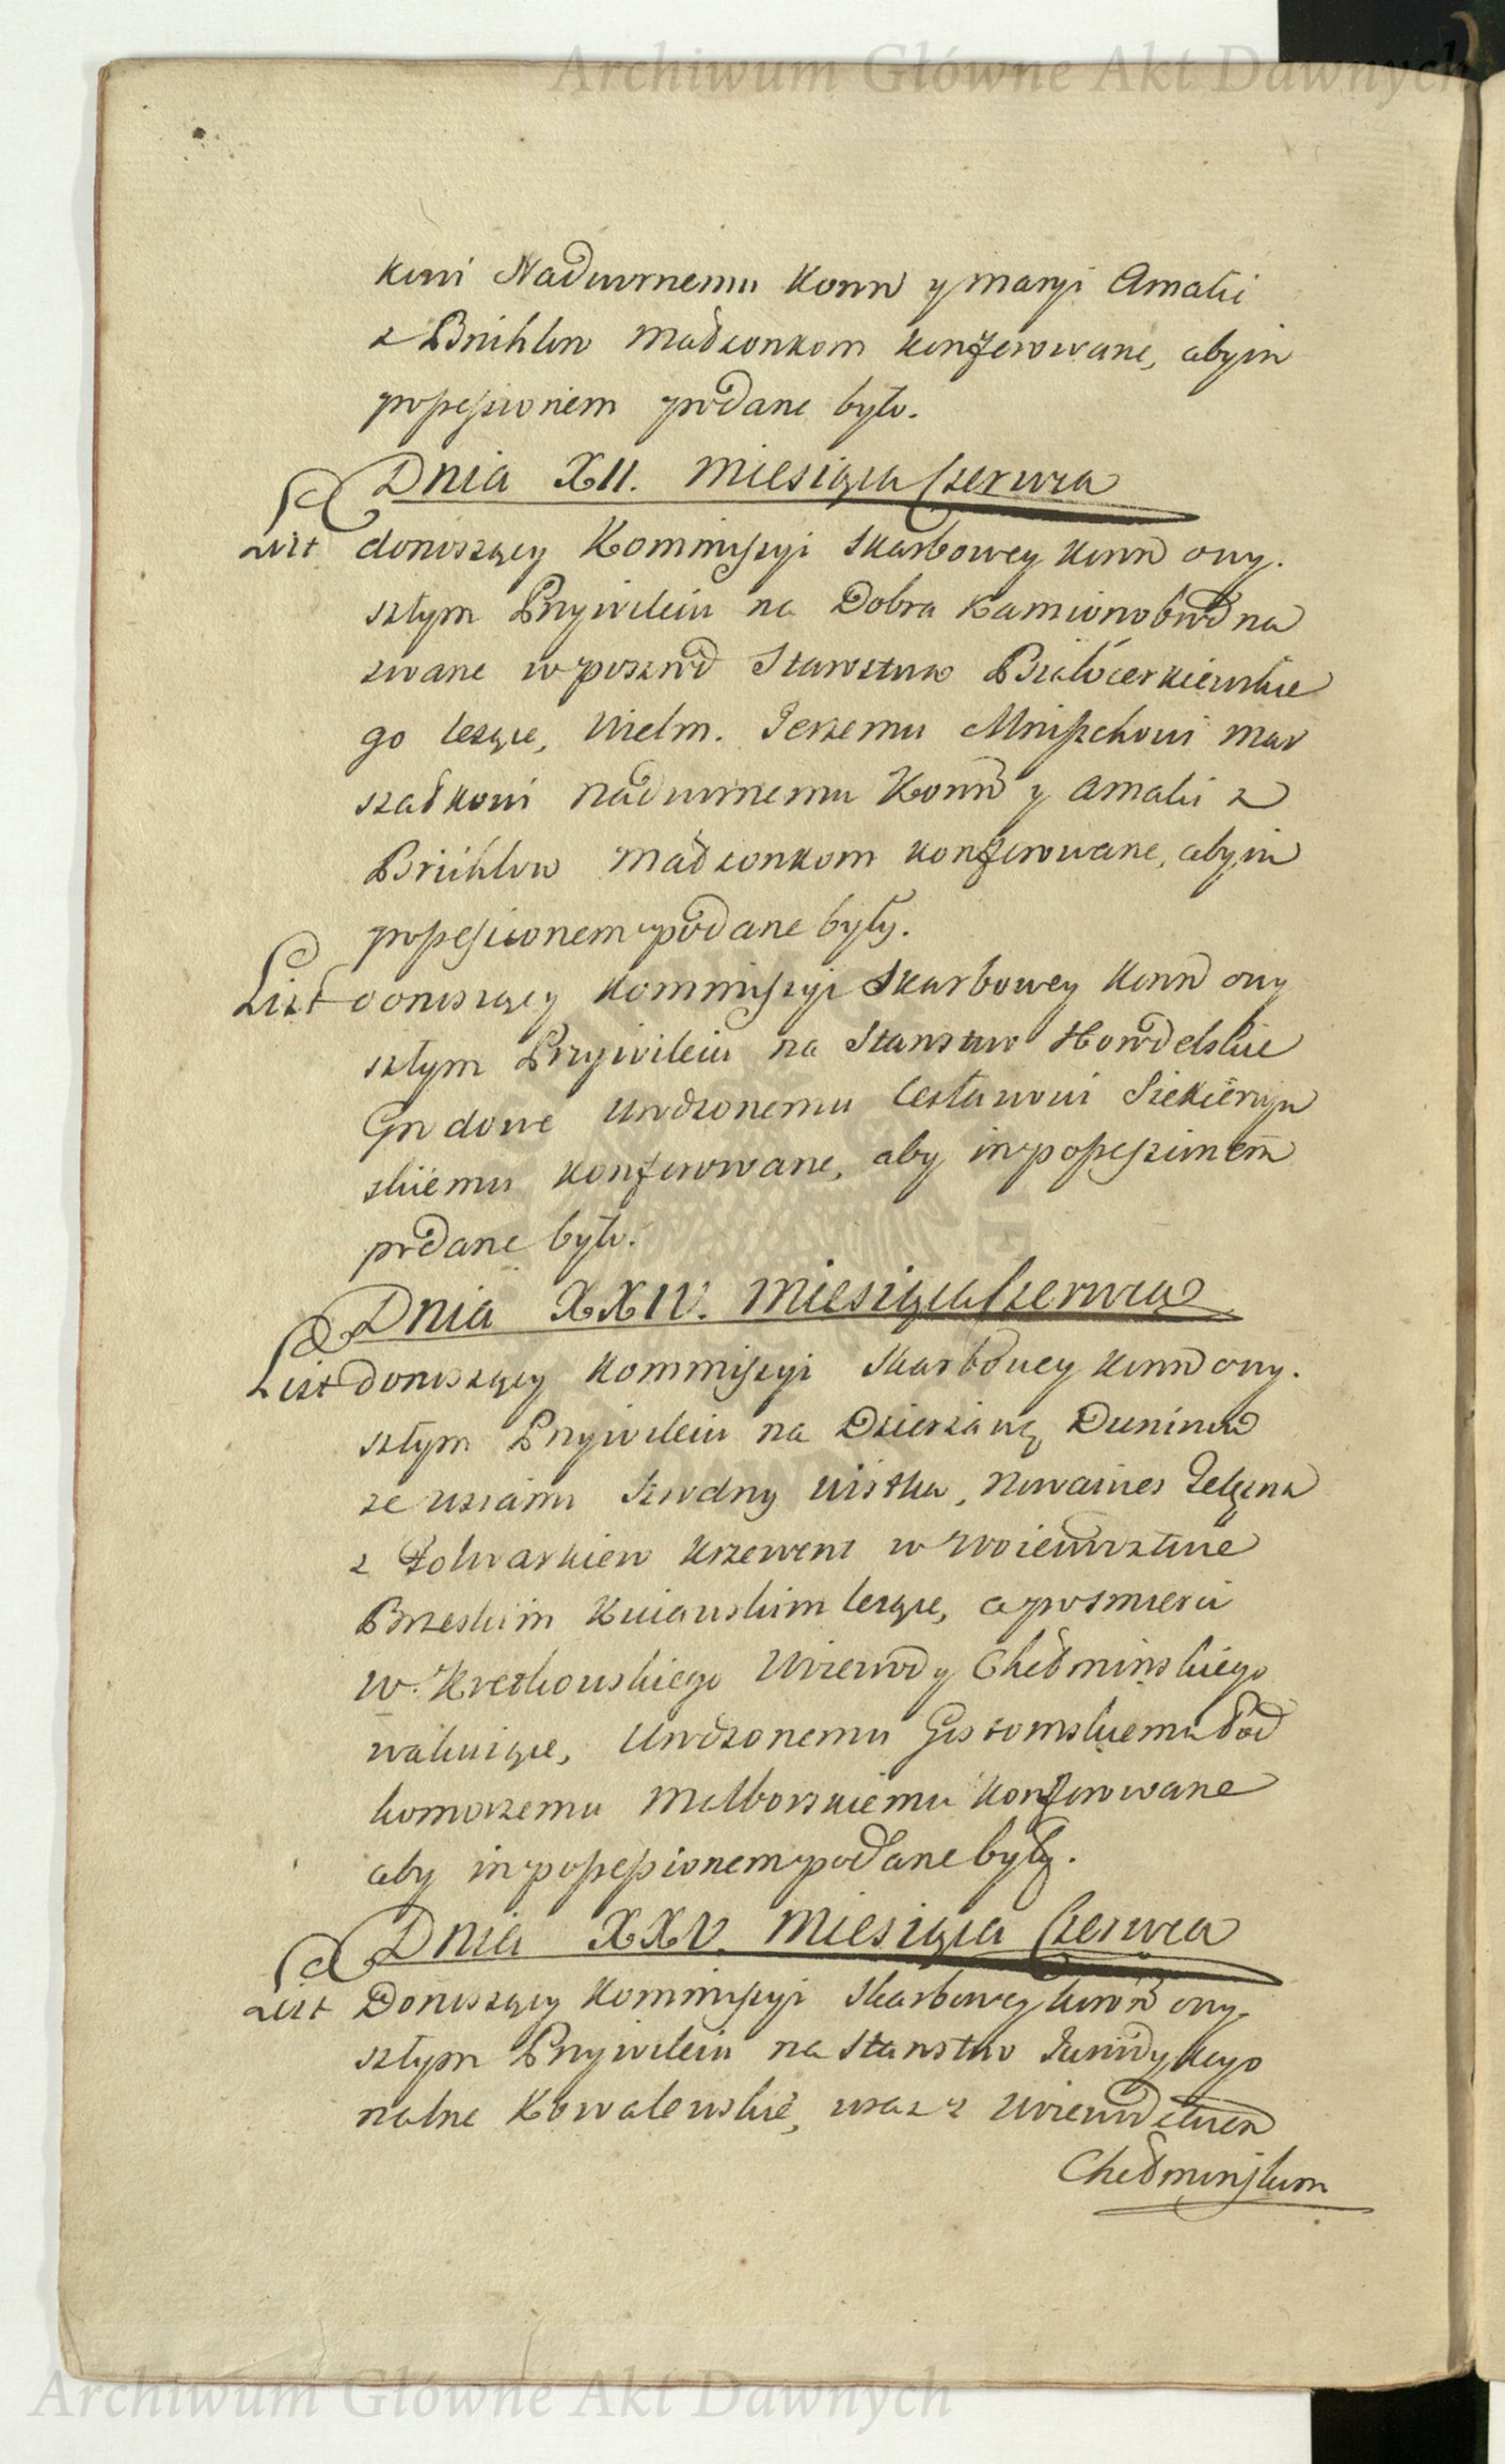 Archiwum Główne Akt Dawnych
kowi Nadwornemu Koron y Maryi Amalii
z Brühlow Małżonkom konferowane, aby in
possessionem podane było.
Dnia XII. Miesiąca Czerwca
List donoszący Kommissyi Skarbowey Koron o wy-
szłym Przywileiu na Dobra Kamionobrod na
zwane w poszrod Starostwa Białocerkiewskie
go leżące, Wielm. Jerzemu Mniszchowi Mar
szałkowi Nadwornemu Koron y Amalii z
Brühlow Małżonkom konferowane, aby in
possessionem podane były.
List donoszący Kommissyi Skarbowey Koron o wy
szłym Przywileiu na Starostwo Horodelskie
Grodowe Urodzonemu Cesławowi Siekierzyn
skiemu konferowane, aby in possessionem
podane było.
Dnia XXIV. Miesiąca Czerwca
List donoszący Kommissyi Skarbowey Koron o wy-
szłym Przywileiu na Dzierżawę Duninow
ze wsiami Wistka, Nowawies
z Folwarkiem Krzewent w Woiewodztwie
Brzeskim Kuiawskim leżące, a po śmierci
W. Kretkowskiego Woiewody Chełminskiego
wakuiące, Urodzonemu Pod
komorzemu Malborskiemu konferowane
aby in possessionem podane były.
Dnia XXV. Miesiąca Czerwca
List Donoszący Kommissyi Skarbowey Koron o wy-
szłym Przywileiu na Starostwo Jurisdykcyo
nalne Kowalewskie, wraz z Woiewodztwem
Chełminskim
Archiwum Główne Akt Dawnych